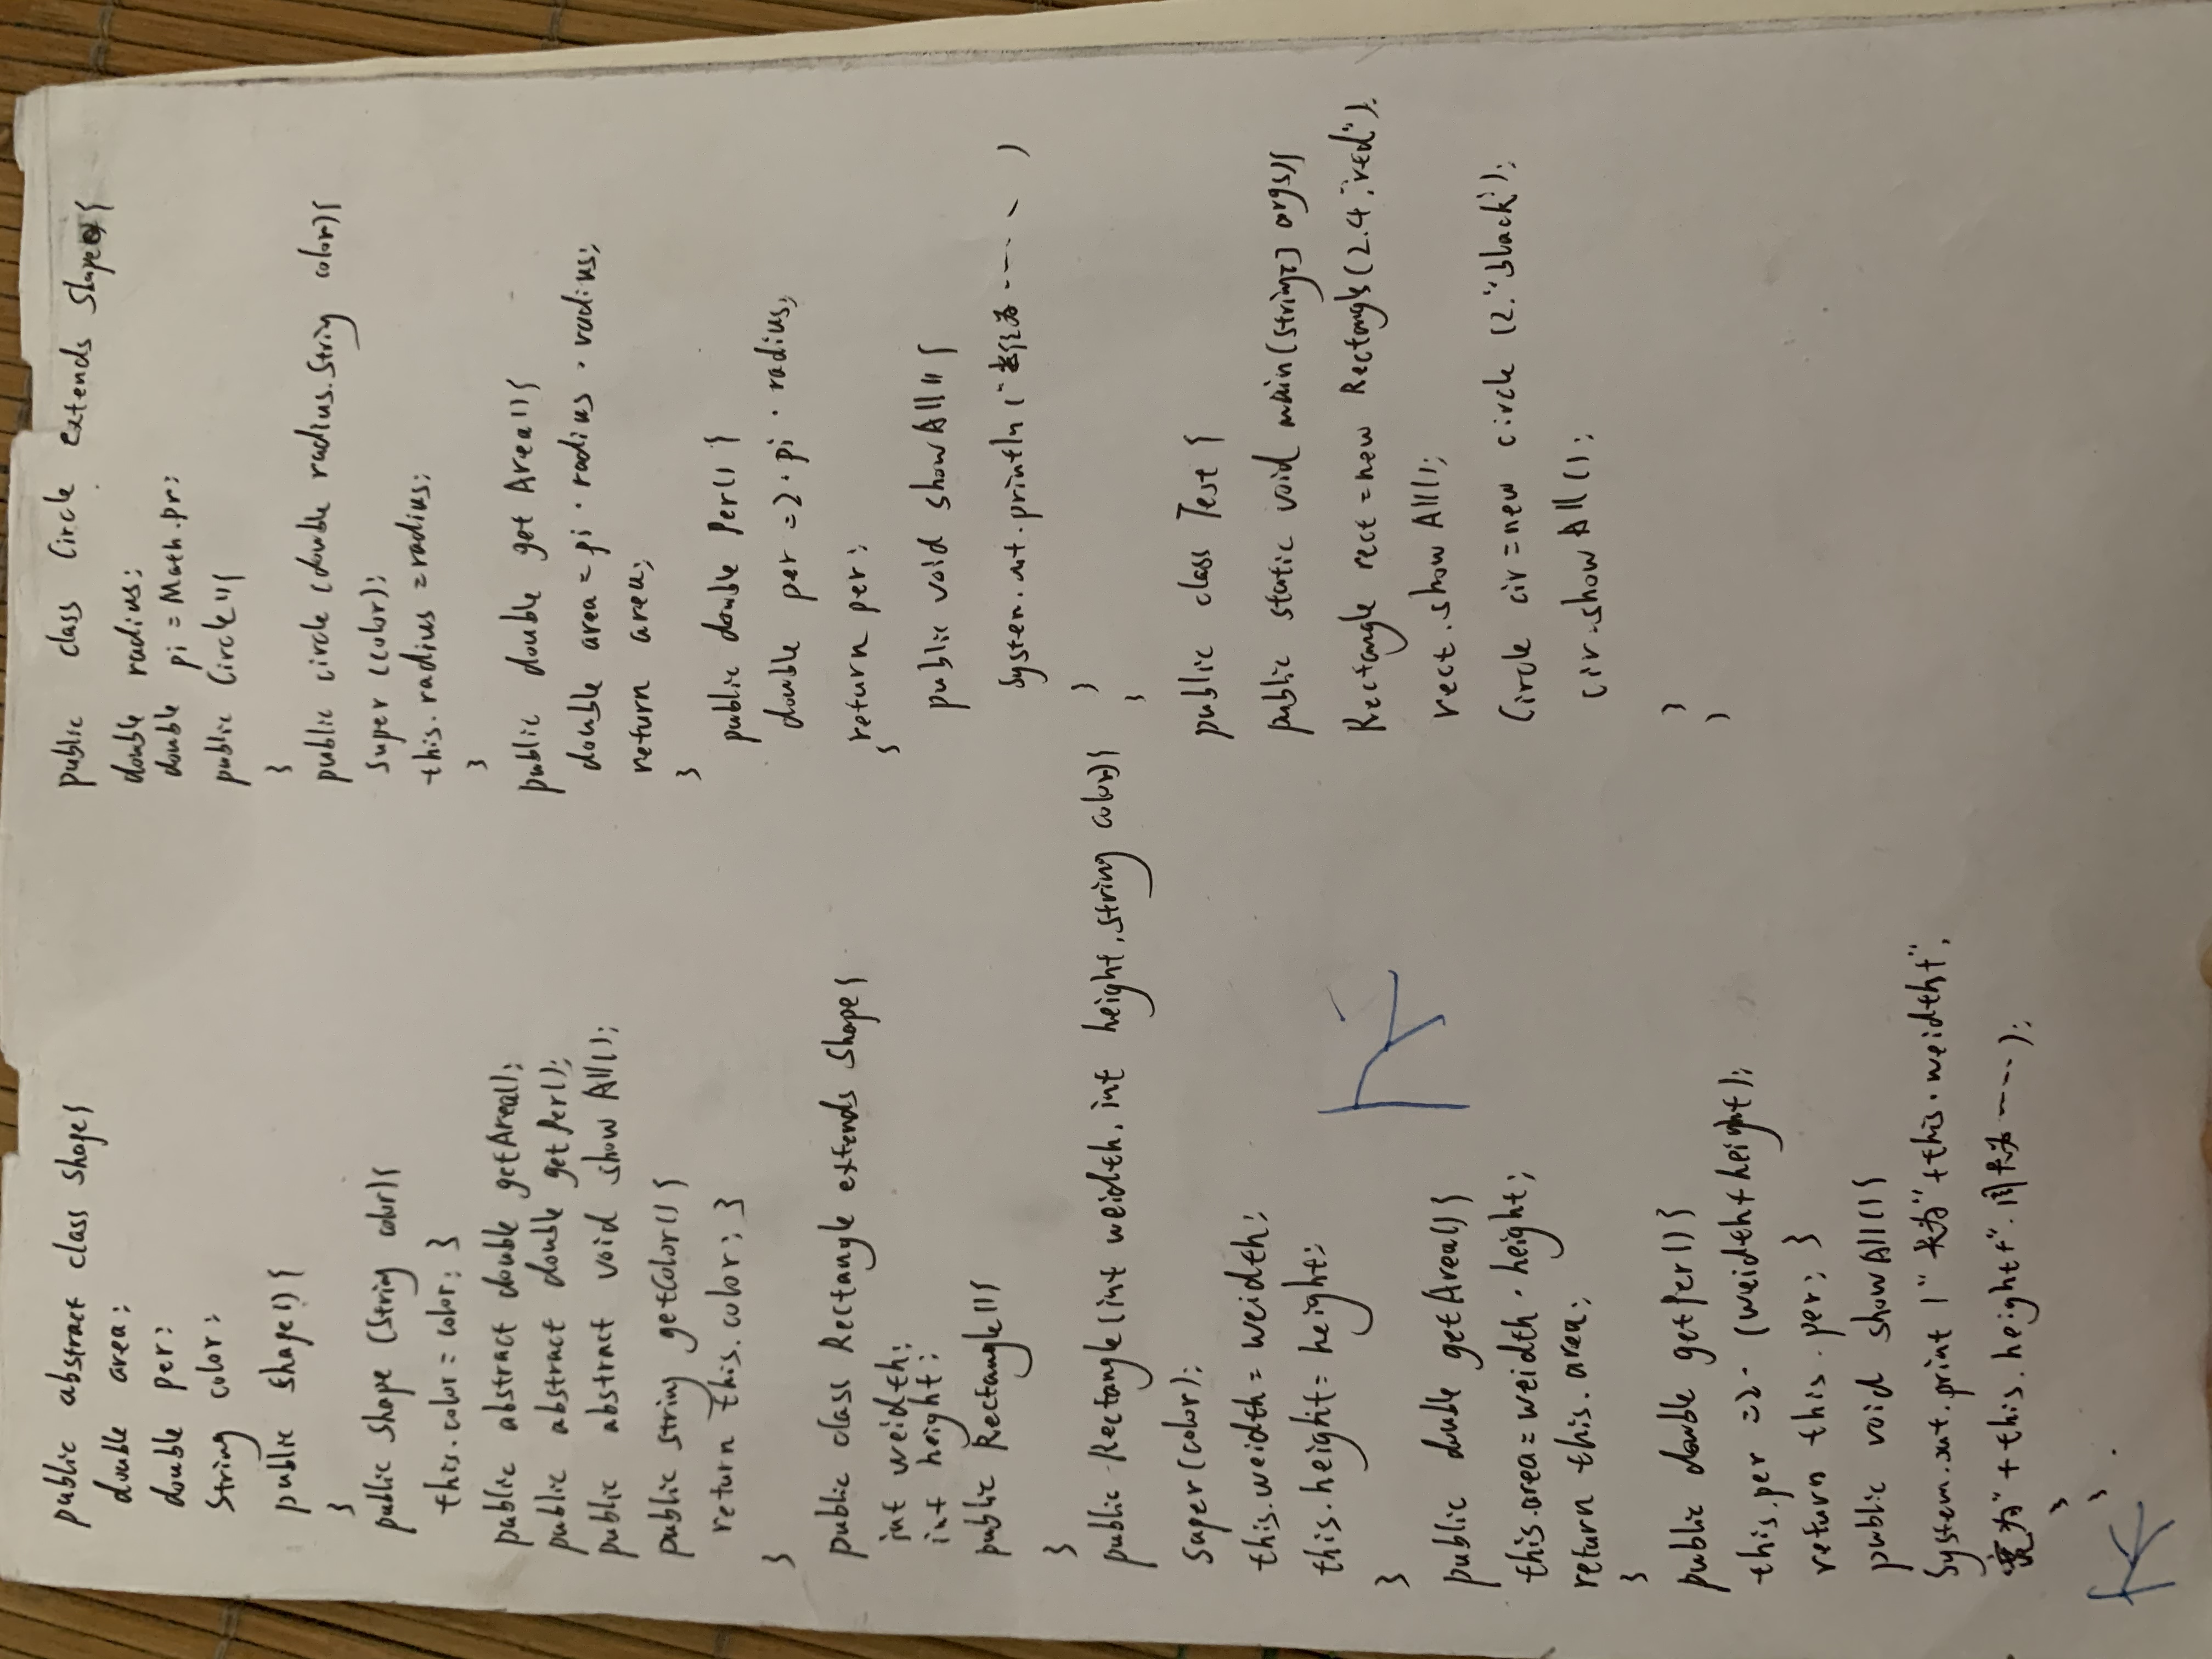 public abstract class Shape{
double area;
double per;
String color;
public shape(){
}
public shape (String color){
this.color = color; }
public abstract double getArea();
public abstract double getPer();
public abstract void showAll();
public string getColor(){
return this.color; }
}
public class Rectangle extends Shape{
int weidth;
int height;
public Rectangle(){
}
public Rectangle(int weidth, int height, string color){
super(color);
this.weidth = weidth;
this.height = height;
}
public double getArea(){
this.area = weidth · height;
return this.area;
}
public double getPer(){
this.per = 2 · (weidth + height);
return this.per; }
public void showAll(){
System.out.print("长为"+this.weidth+",
宽为"+this.height+".周长为----);
}
}
public class Circle extends Shape{
double radius;
double pi = Math.pr;
public Circle(){
}
public circle (double radius.String color){
super(color);
this.radius = radius;
}
public double get Area(){
double area = pi · radius · radius;
return area;
}
public double Per(){
double per = 2 · pi · radius;
return per;
}
public void showAll(){
System.out.println( ---- )
}
}
public class Test {
public static void main(string[] args){
Rectangle rect = new Rectangle(2.4,"red");
rect.showAll();
Circle cir = new circle (2."black");
cir.showAll();
}
}